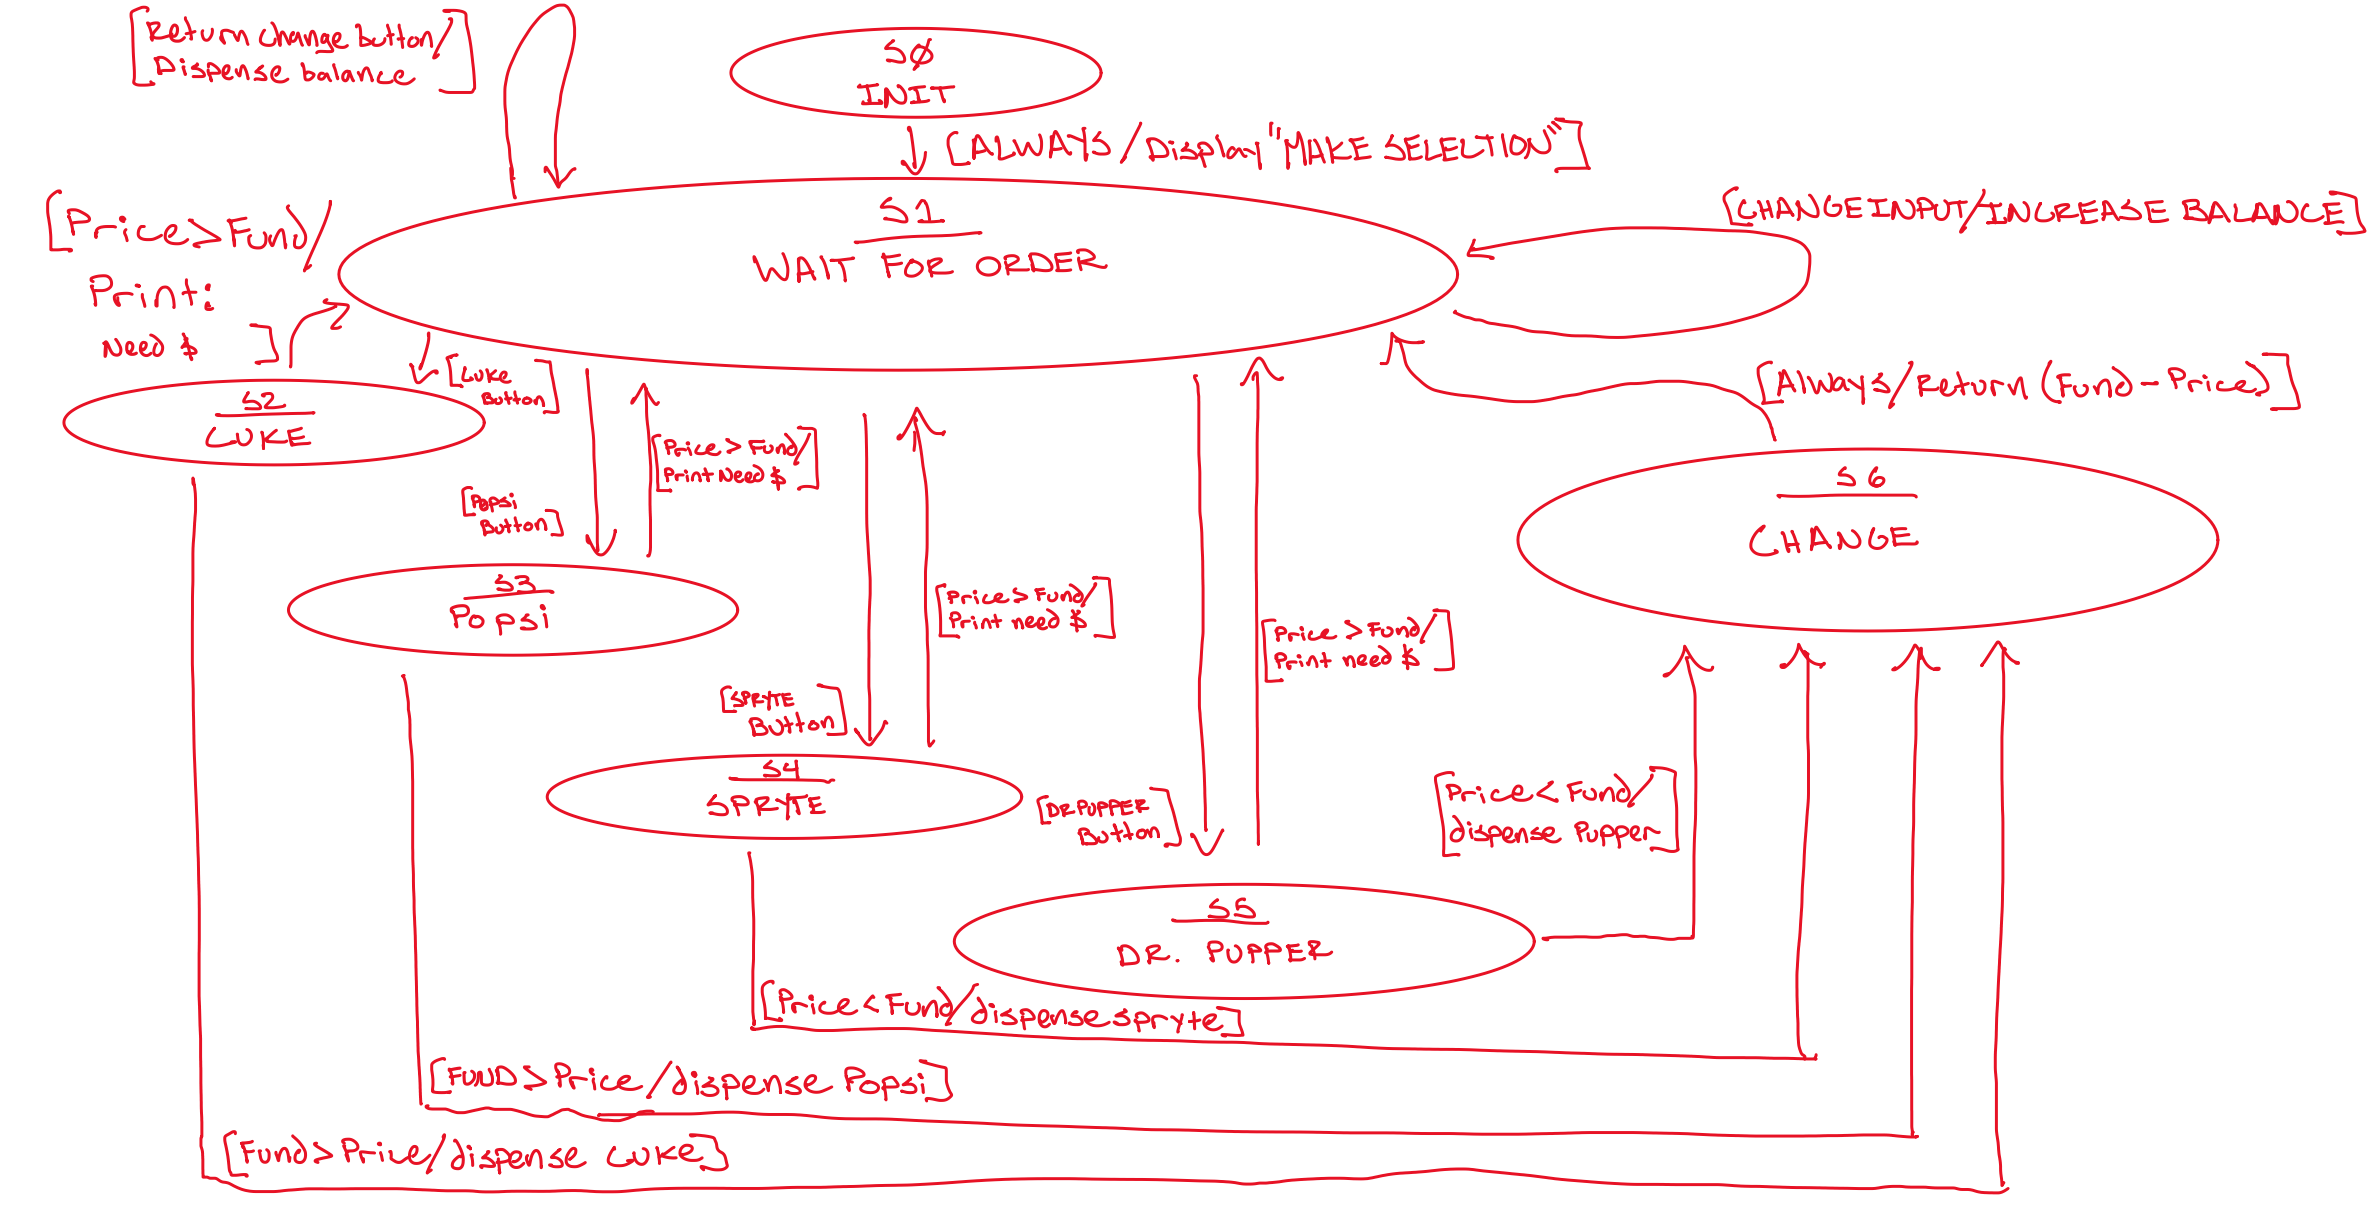 [Return change button/
Dispense balance]
SØ
INIT
[ALWAYS/Display "MAKE SELECTION"]
S1
WAIT FOR ORDER
[CHANGE INPUT/INCREASE BALANCE]
[Price>Fund/
Print:
Need $]
[Luke
Button]
S2
LUKE
[Price > Fund/
Print Need $]
[Popsi
Button]
S3
Popsi
[Always/Return (Fund-Price)]
S6
CHANGE
[Price > Fund/
Print need $]
[Price > Fund/
Print need $]
[SPRYTE
Button]
S4
SPRYTE
[DR.PUPPER
Button]
[Price < Fund/
dispense Pupper]
S5
DR. PUPPER
[Price < Fund/dispense spryte]
[FUND > Price/dispense Popsi]
[Fund > Price/dispense Luke]